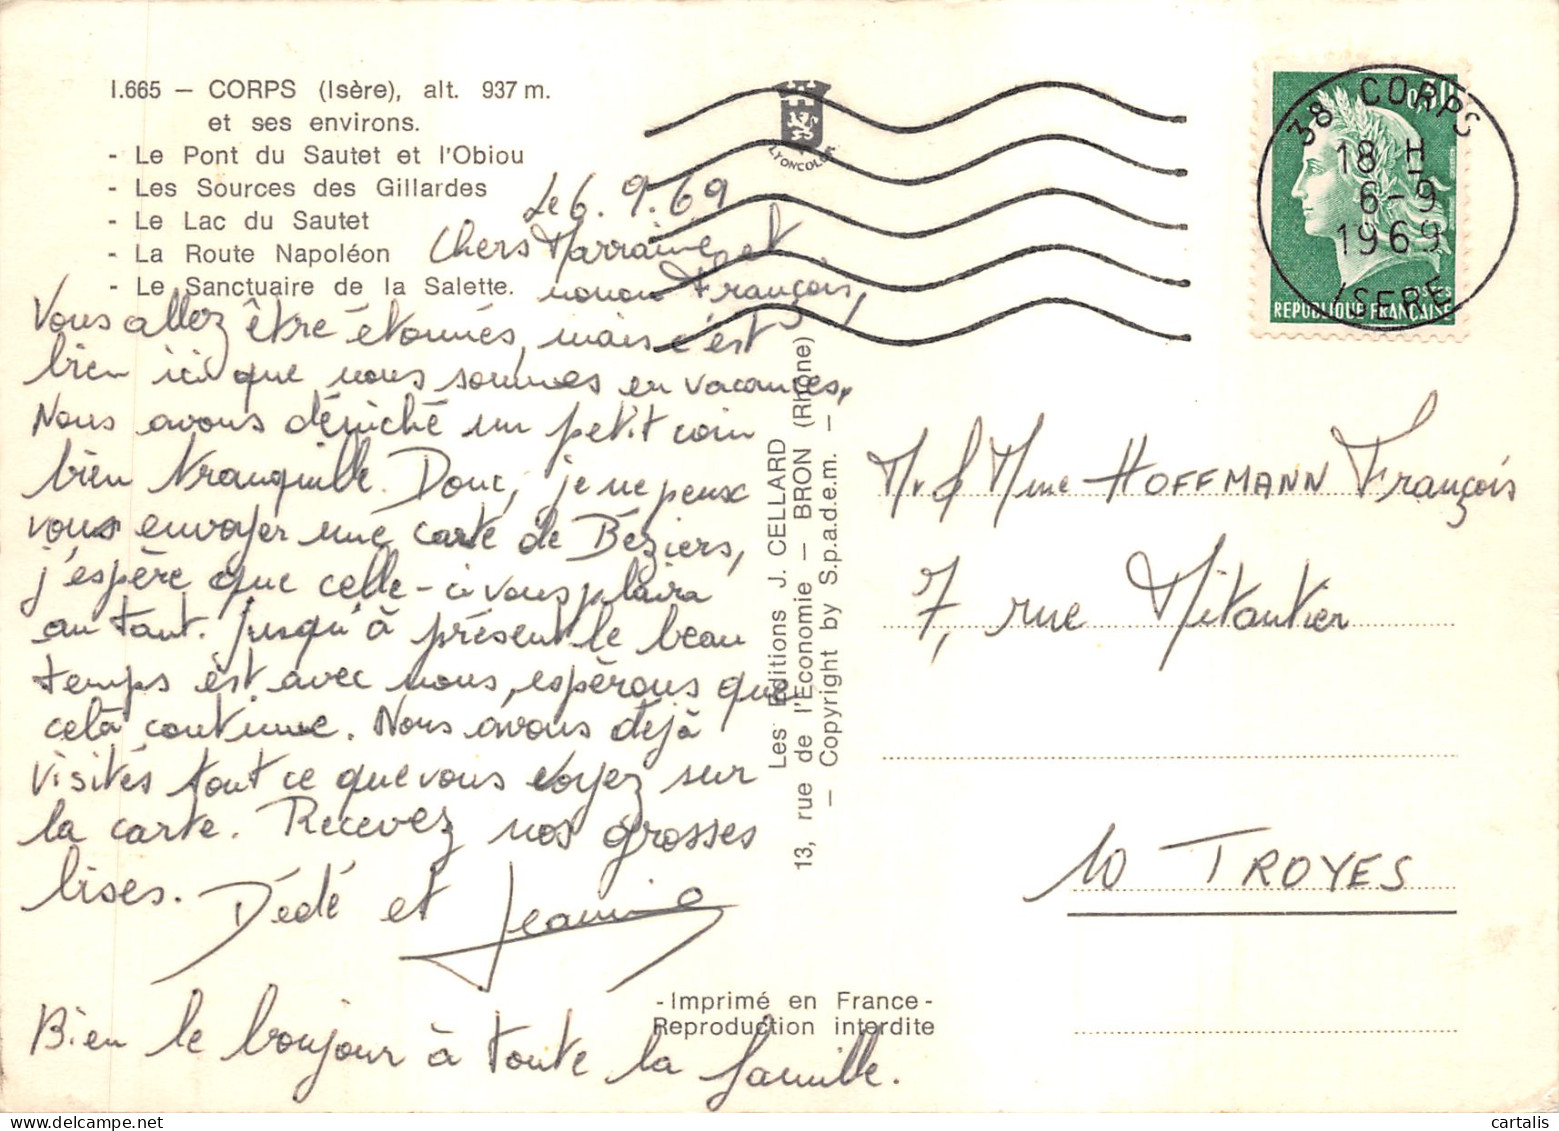 I.665 – CORPS (Isère), alt. 937 m.
et ses environs.
- Le Pont du Sautet et l'Obiou
- Les Sources des Gillardes
- Le Lac du Sautet
- La Route Napoléon
- Le Sanctuaire de la Salette.
LYONCOLOR
38 CORPS
18 H
6-9
1969
ISERE
0,30
POSTES
REPUBLIQUE FRANÇAISE
Le 6.9.69
Chers Marraine et
nonon François,
Vous allez être étonnés, mais c'est
bien ici que nous sommes en vacances.
Nous avons déniché un petit coin
bien tranquille. Donc, je ne peux
vous envoyer une carte de Béziers,
j'espère que celle-ci vous plaira
autant. Jusqu'à présent le beau
temps est avec nous, espérons que
celà continue. Nous avons déjà
visités tout ce que vous voyez sur
la carte. Recevez nos grosses
bises. Dédé et Jeannine
Bien le bonjour à toute la famille.
Les Editions J. CELLARD
13, rue de l'Economie – BRON (Rhône)
– Copyright by S.p.a.d.e.m. –
Mr & Mme HOFFMANN François
7, rue Mitantier
10 TROYES
- Imprimé en France -
Reproduction interdite
cartalis